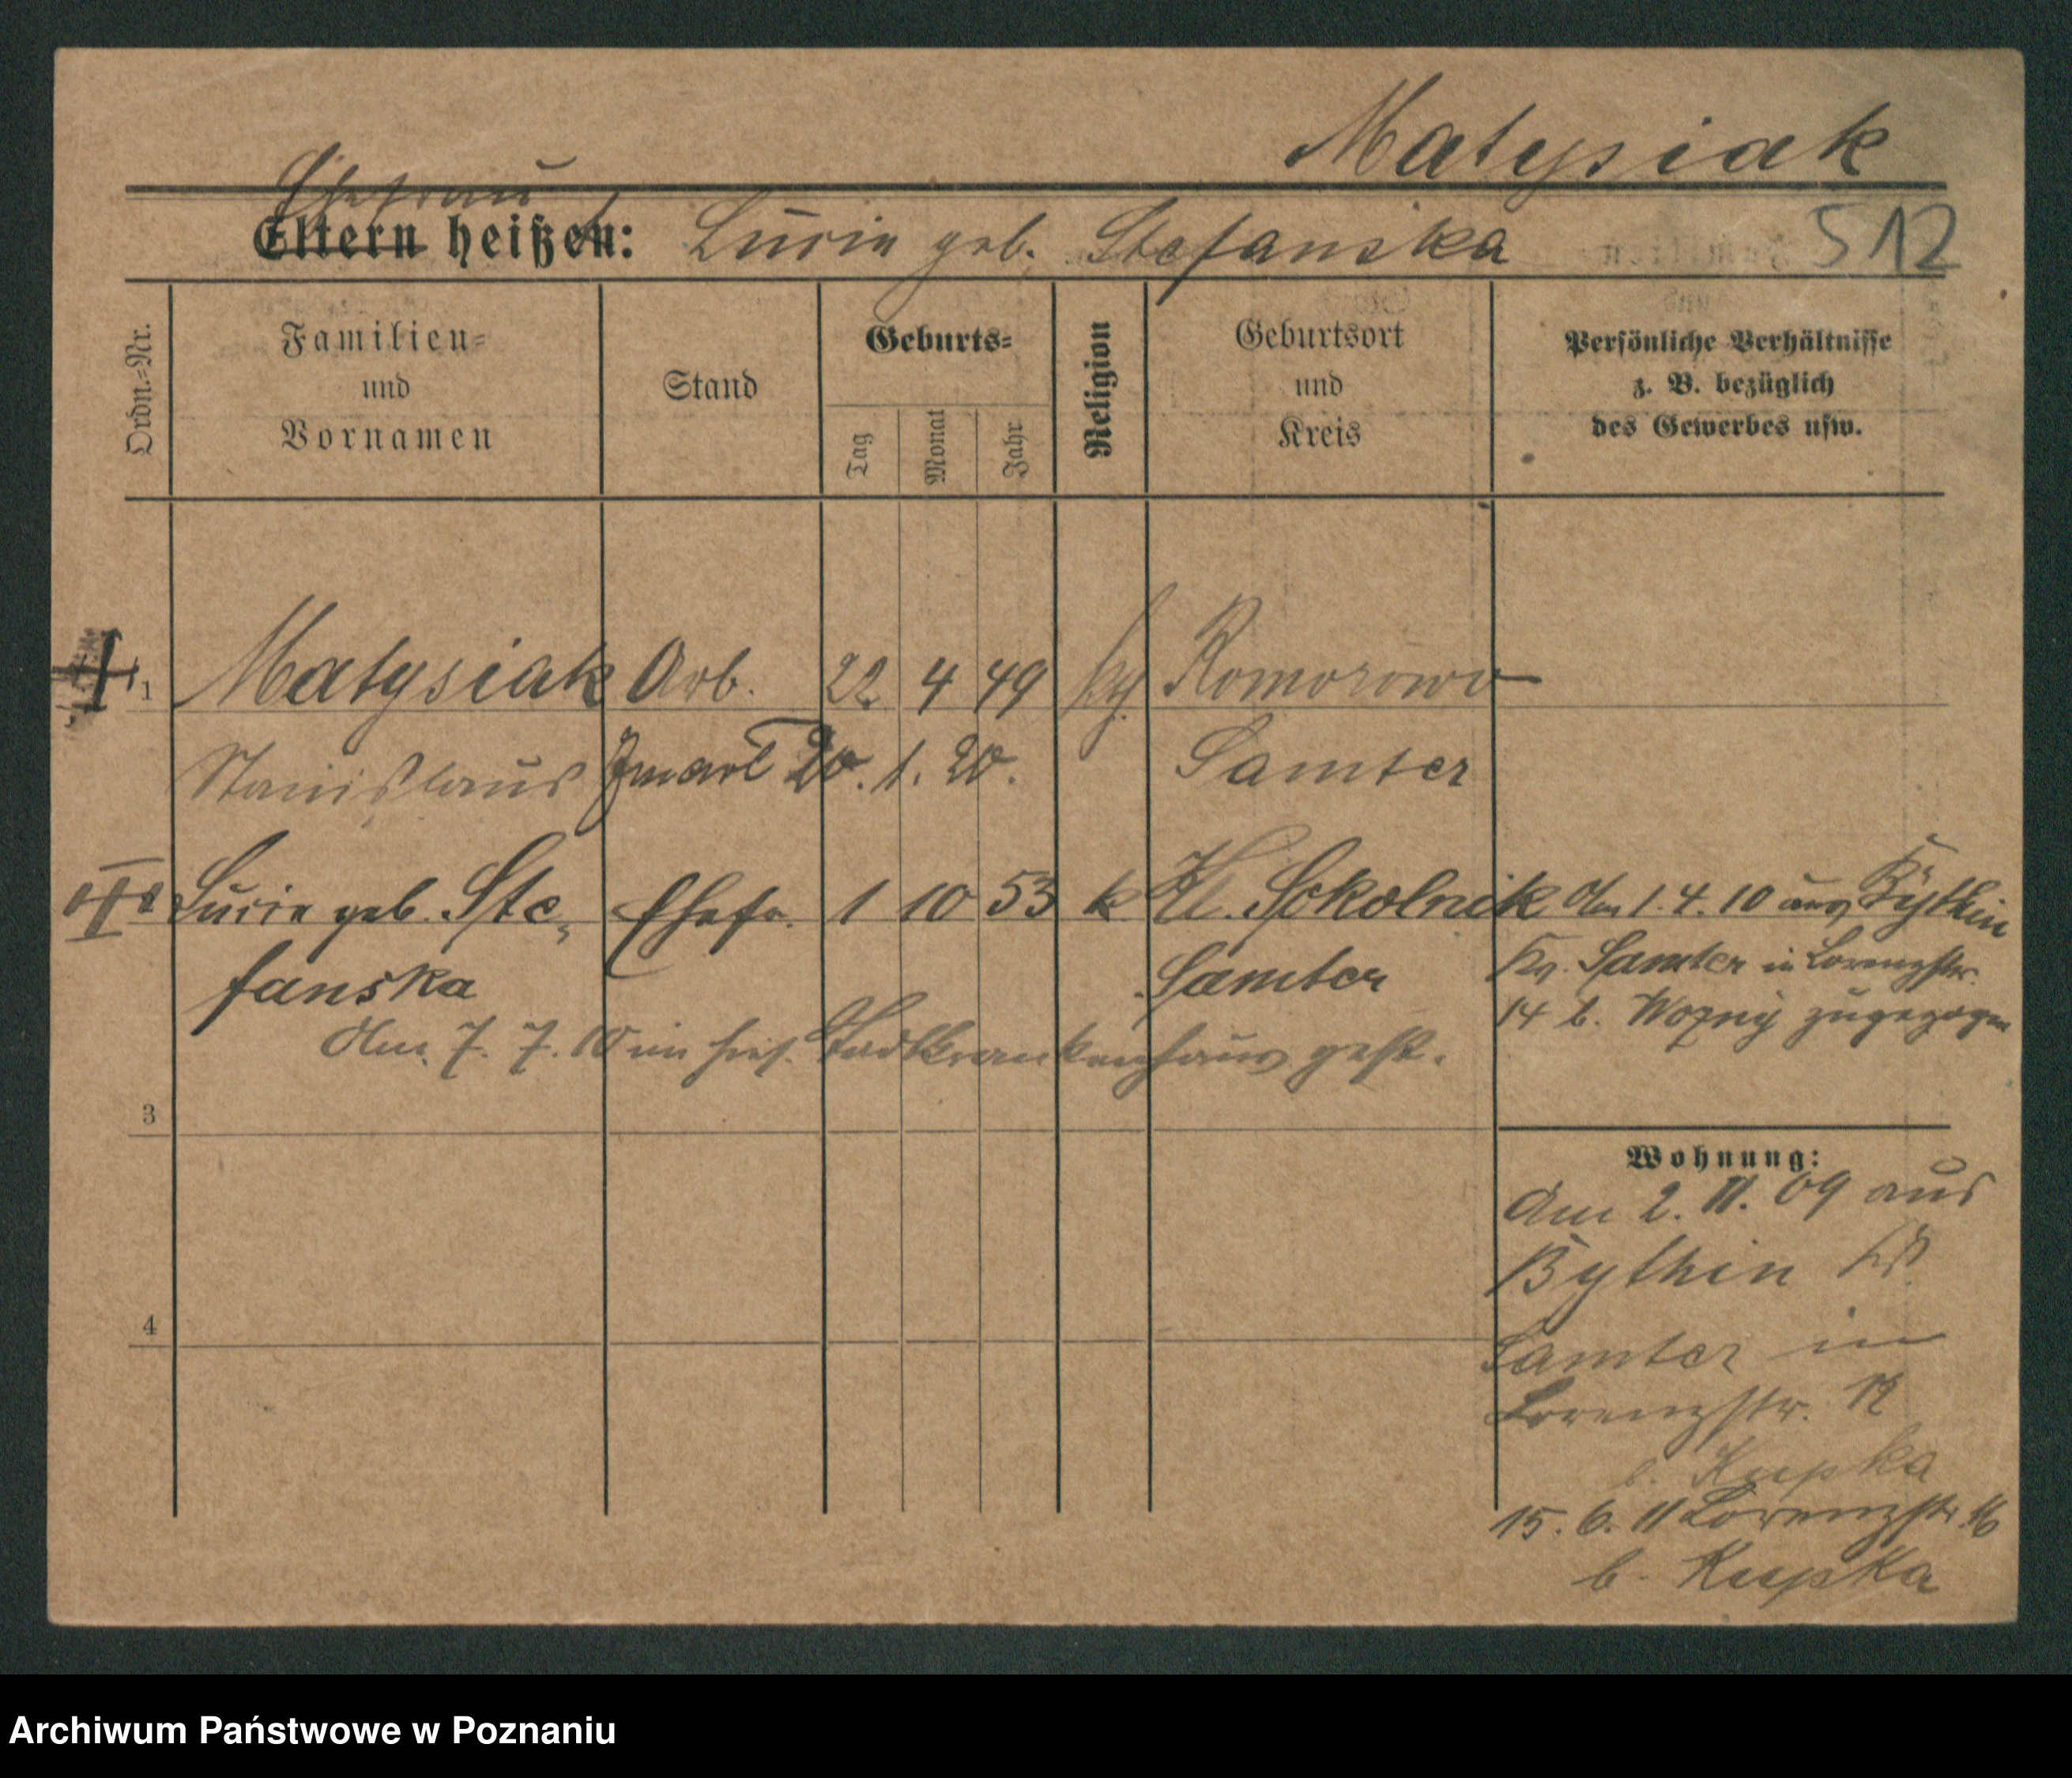 Matysiak
Ehefrau
Eltern heißen: Lucia geb. Stefanska 512
Ordn.-Nr.
Familien-
und
Vornamen
Stand
Geburts-
Tag
Monat
Jahr
Religion
Geburtsort
und
Kreis
Persönliche Verhältnisse
z. B. bezüglich
des Gewerbes usw.
1 Matysiak Arb. 22 4 49 Komorowo
Stanislaus 20. 1. 20. Samter
Lucia geb. Ste- Ehefr. 1 10 53 k Kl. Sokolnik Am 1.4.10 aus Bythin
fanska Samter Kr. Samter in Lorenzstr.
14 b. Wozny zugezogen
Am 7. 7. 10 im hies. Stadtkrankenhaus gest.
3
Wohnung:
Am 2. 11. 09 aus
Bythin Kr.
4
Samter in
Lorenzstr.
b. Kupka
15. 6. 11 Lorenzstr. 16
b. Kupka
Archiwum Państwowe w Poznaniu